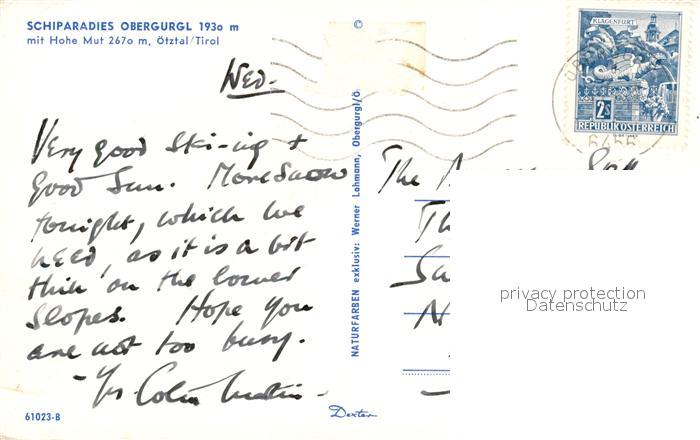 SCHIPARADIES OBERGURGL 1930 m
mit Hohe Mut 2670 m, Ötztal/Tirol
Wed.
Very good Ski-ing +
good Sun. More Snow
tonight, which we
need, as it is a bit
thin on the lower
Slopes. Hope you
are not too busy.
- Yrs Colin
61023-B
©
NATURFARBEN exklusiv: Werner Lohmann, Obergurgl/Ö.
Dexter
KLAGENFURT
2S
REPUBLIK ÖSTERREICH
6456
The
Th
Sa
N
privacy protection
Datenschutz